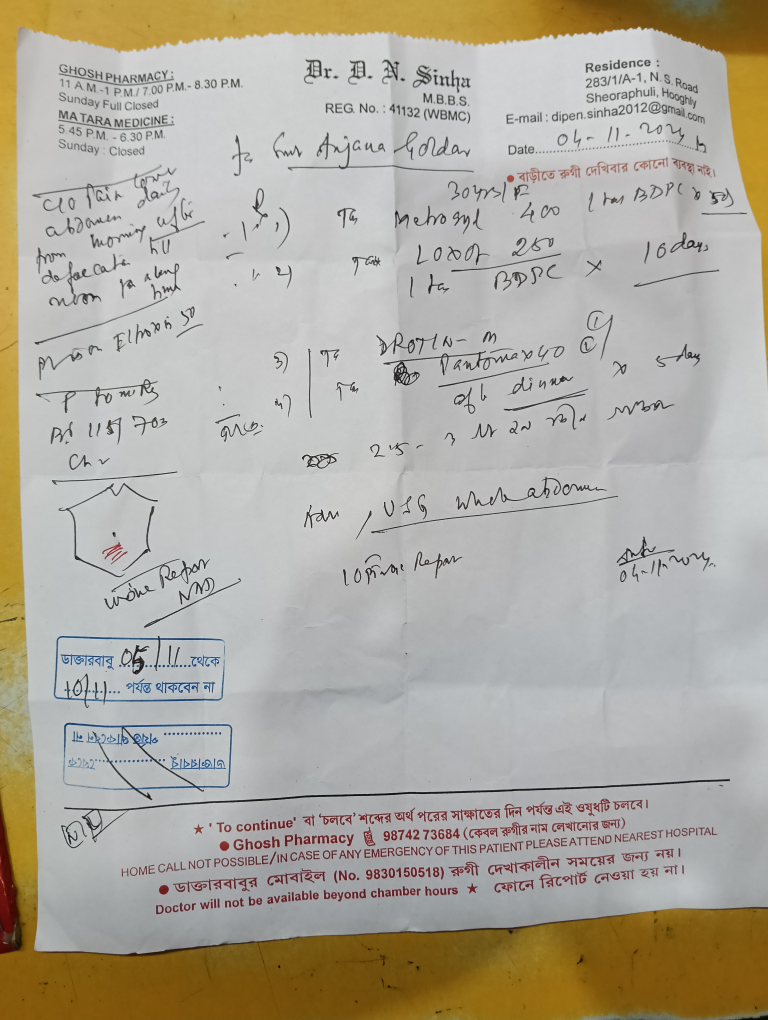 GHOSH PHARMACY :
11 A.M.-1 P.M./ 7.00 P.M.- 8.30 P.M.
Sunday Full Closed
MA TARA MEDICINE :
5.45 P.M. - 6.30 P.M.
Sunday : Closed
Dr. D. N. Sinha
M.B.B.S.
REG. No. : 41132 (WBMC)
Residence :
283/1/A-1, N. S. Road
Sheoraphuli, Hooghly
E-mail : dipen.sinha2012@gmail.com
Date 04-11-2024
● বাড়ীতে রুগী দেখিবার কোনো ব্যবস্থা নাই।
Anjana Goldar
30 yrs/F
C/O Pain lower
abdomen daily
from morning after
defaecation till
noon
1) Metrogyl 400 1 tab BDPC x 5d
2) Loxof 250
1 tab BDPC x 10 days
50
3) DROTIN-M
4) Pantomax 40
dinner x 5 day
P
115/70
USG whole abdomen
Urine Repor
NAD
Repor
04-11-2024
ডাক্তারবাবু 05/11 থেকে
10/11 পর্যন্ত থাকবেন না
ডাক্তারবাবু থেকে
পর্যন্ত থাকবেন না
★ ' To continue' বা 'চলবে' শব্দের অর্থ পরের সাক্ষাতের দিন পর্যন্ত এই ওষুধটি চলবে।
● Ghosh Pharmacy 98742 73684 (কেবল রুগীর নাম লেখানোর জন্য)
HOME CALL NOT POSSIBLE/IN CASE OF ANY EMERGENCY OF THIS PATIENT PLEASE ATTEND NEAREST HOSPITAL
● ডাক্তারবাবুর মোবাইল (No. 9830150518) রুগী দেখাকালীন সময়ের জন্য নয়।
Doctor will not be available beyond chamber hours ★ ফোনে রিপোর্ট নেওয়া হয় না।